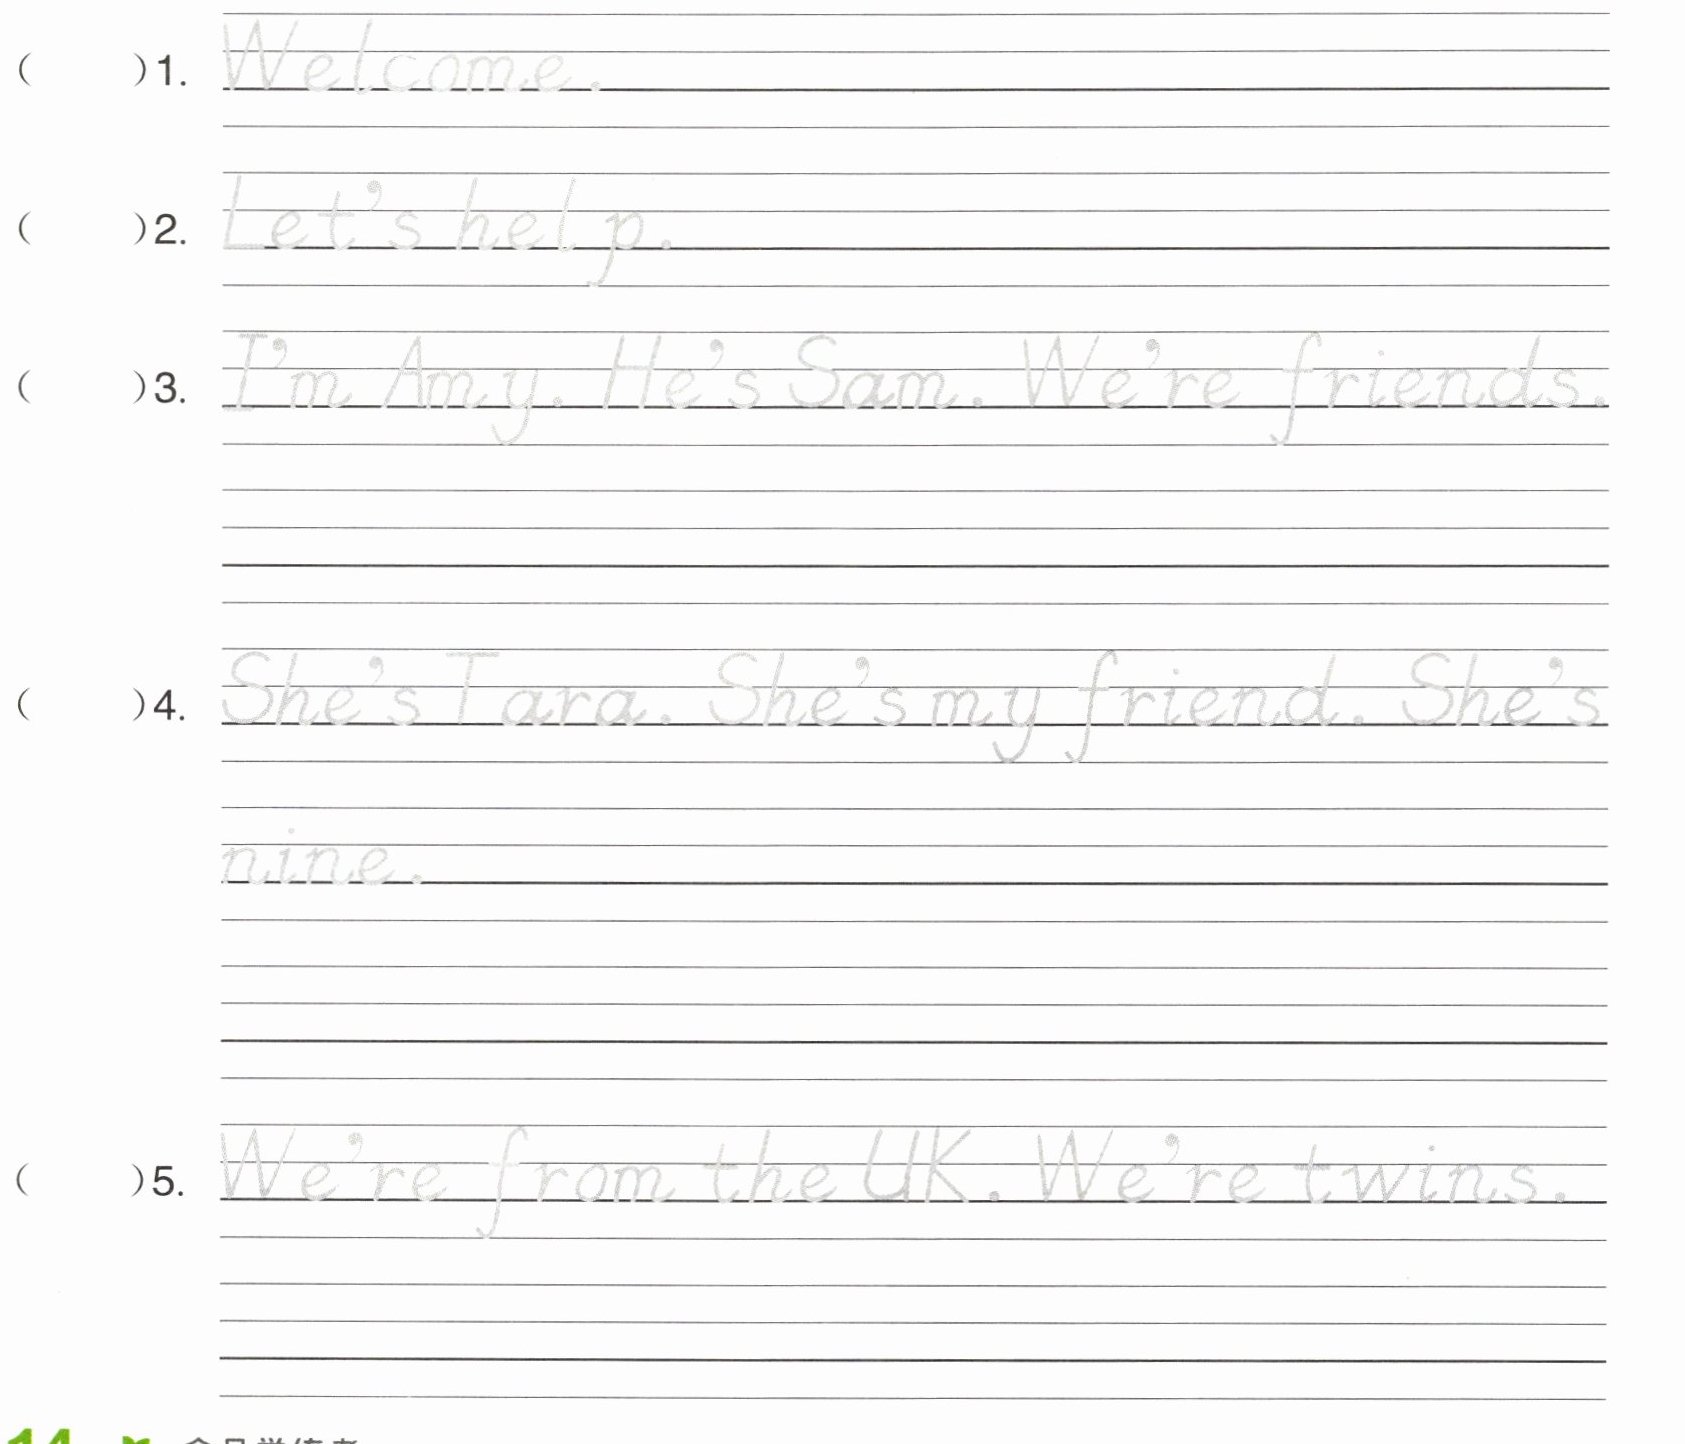 ( )1. Welcome.
( )2. Let's help.
( )3. I'm Amy. He's Sam. We're friends.
( )4. She's Tara. She's my friend. She's
nine.
( )5. We're from the UK. We're twins.